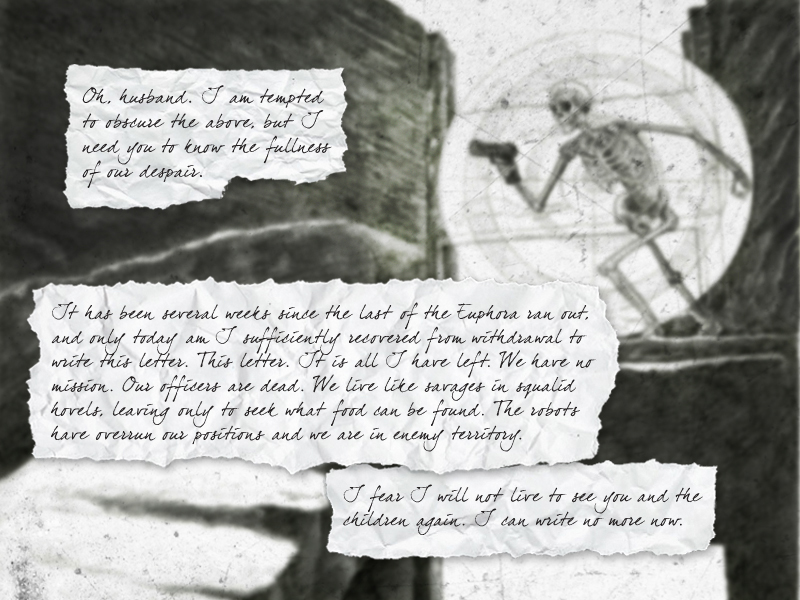 Oh, husband. I am tempted
to obscure the above, but I
need you to know the fullness
of our despair.
It has been several weeks since the last of the Euphora ran out,
and only today am I sufficiently recovered from withdrawal to
write this letter. This letter. It is all I have left. We have no
mission. Our officers are dead. We live like savages in squalid
hovels, leaving only to seek what food can be found. The robots
have overrun our positions and we are in enemy territory.
I fear I will not live to see you and the
children again. I can write no more now.